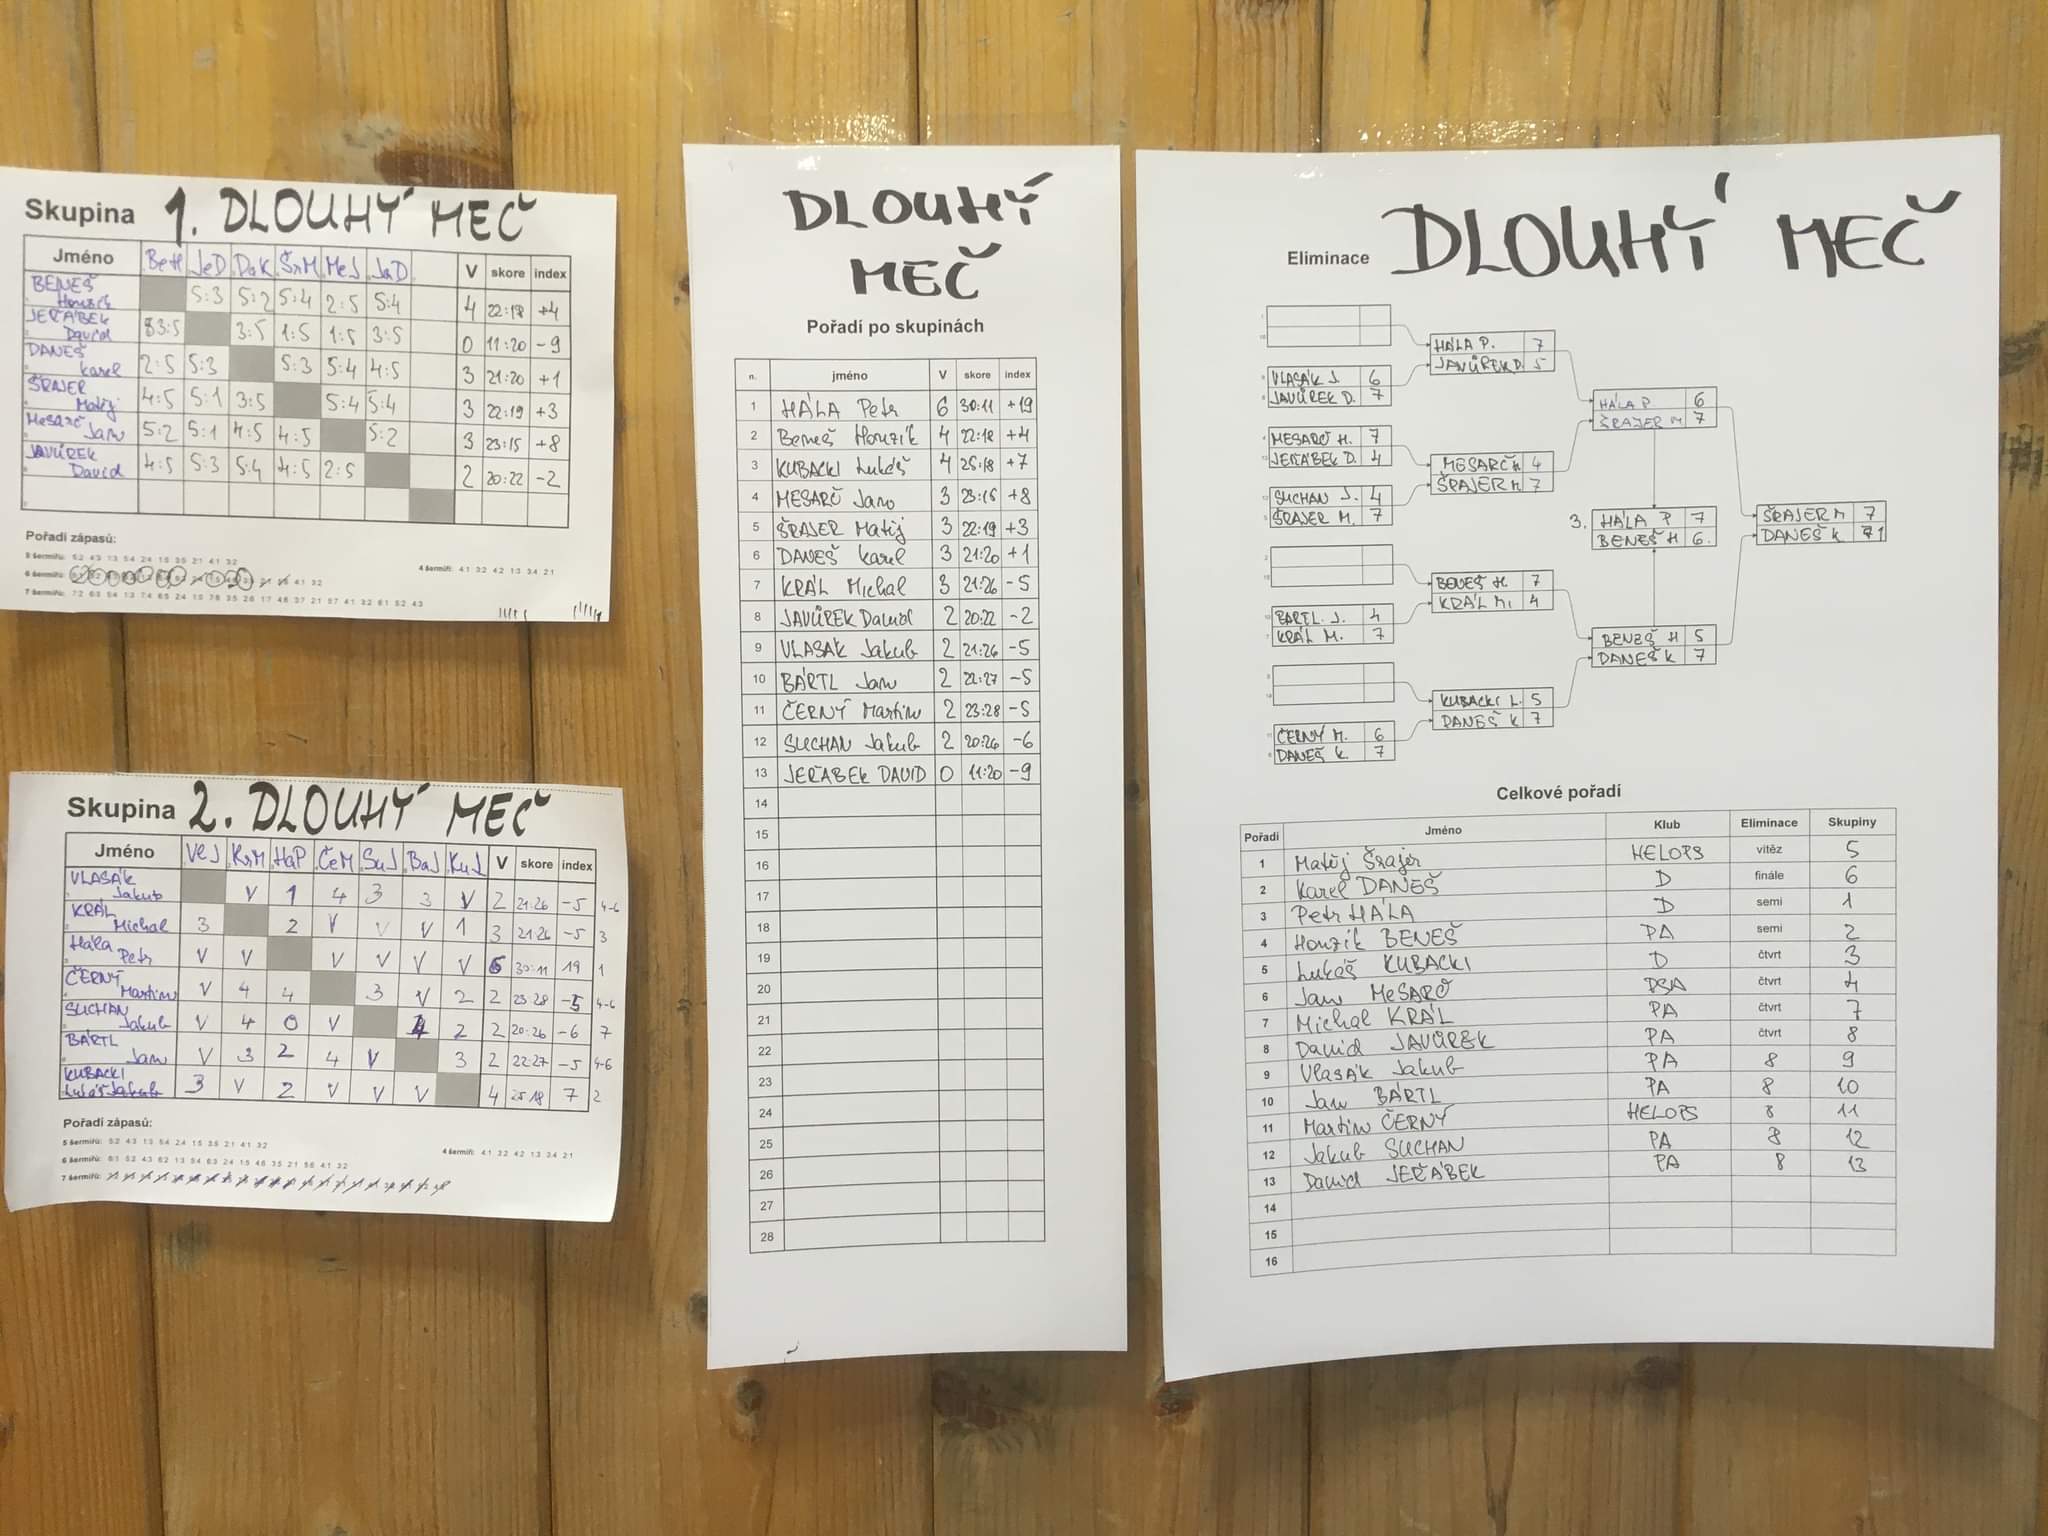 Skupina 1. DLOUHÝ MEČ
Jméno BeH JeD DaK ŠrM MeJ JaD V skore index
BENEŠ Honzik 5:3 5:2 5:4 2:5 5:4 4 22:18 +4
JEŘÁBEK David 3:5 3:5 1:5 1:5 3:5 0 11:20 -9
DANEŠ Karel 2:5 5:3 5:3 5:4 4:5 3 21:20 +1
ŠRAJER Matěj 4:5 5:1 3:5 5:4 5:4 3 22:19 +3
Mesarč Jan 5:2 5:1 4:5 4:5 5:2 3 23:15 +8
JAVŮREK David 4:5 5:3 5:4 4:5 2:5 2 20:22 -2
Pořadí zápasů:
5 šermířů: 5.2 4.3 1.3 5.4 2.4 1.5 3.5 2.1 4.1 3.2
4 šermíři: 4.1 3.2 4.2 1.3 3.4 2.1
6 šermířů:
7 šermířů: 7.2 6.3 5.4 1.3 7.4 6.5 2.4 1.5 7.6 3.5 2.6 1.7 4.6 3.7 2.1 5.7 4.1 3.2 6.1 5.2 4.3
Skupina 2. DLOUHÝ MEČ
Jméno VlJ KrM HaP ČeM SuJ BaJ KuL V skore index
VLASÁK Jakub V 1 4 3 3 V 2 21:26 -5 4-6
KRÁL Michal 3 2 V V V 1 3 21:26 -5 3
Hála Petr V V V V V V 6 30:11 19 1
ČERNÝ Martin V 4 4 3 V 2 2 23:28 -5 4-6
SUCHAN Jakub V 4 0 V 4 2 2 20:26 -6 7
BÁRTL Jan V 3 2 4 V 3 2 22:27 -5 4-6
KUBACKI Lukáš 3 V 2 V V V 4 25:18 7 2
Pořadí zápasů:
5 šermířů: 5.2 4.3 1.3 5.4 2.4 1.5 3.5 2.1 4.1 3.2
4 šermíři: 4.1 3.2 4.2 1.3 3.4 2.1
6 šermířů: 6.1 5.2 4.3 6.2 1.3 5.4 6.3 2.4 1.5 4.6 3.5 2.1 5.6 4.1 3.2
7 šermířů:
DLOUHÝ
MEČ
Pořadí po skupinách
n. jméno V skore index
1 HÁLA Petr 6 30:11 +19
2 Beneš Honzik 4 22:18 +4
3 KUBACKI Lukáš 4 25:18 +7
4 MESARČ Jano 3 23:15 +8
5 ŠRAJER Matěj 3 22:19 +3
6 DANEŠ Karel 3 21:20 +1
7 KRÁL Michal 3 21:26 -5
8 JAVŮREK David 2 20:22 -2
9 VLASÁK Jakub 2 21:26 -5
10 BÁRTL Jan 2 22:27 -5
11 ČERNÝ Martin 2 23:28 -5
12 SUCHAN Jakub 2 20:26 -6
13 JEŘÁBEK DAVID 0 11:20 -9
14
15
16
17
18
19
20
21
22
23
24
25
26
27
28
Eliminace DLOUHÝ MEČ
HÁLA P. 7
JAVŮREK D. 5
VLASÁK J. 6
JAVŮREK D. 7
HÁLA P. 6
ŠRAJER M 7
MESARČ H. 7
JEŘÁBEK D. 4
MESARČ H. 4
ŠRAJER M. 7
SUCHAN J. 4
ŠRAJER M. 7
3. HÁLA P 7
BENEŠ H 6.
ŠRAJER M 7
DANEŠ K 1
BENEŠ H. 7
KRÁL M. 4
BARTL. J. 4
KRÁL M. 7
BENEŠ H 5
DANEŠ K 7
KUBACKI L. 5
DANEŠ K 7
ČERNÝ M. 6
DANEŠ K. 7
Celkové pořadí
Pořadí Jméno Klub Eliminace Skupiny
1 Matěj Šrajer HELOPS vítěz 5
2 Karel DANEŠ D finále 6
3 Petr HÁLA D semi 1
4 Honzik BENEŠ PA semi 2
5 Lukáš KUBACKI D čtvrt 3
6 Jan MESARČ DSA čtvrt 4
7 Michal KRÁL PA čtvrt 7
8 David JAVŮREK PA čtvrt 8
9 Vlasák Jakub PA 8 9
10 Jan BÁRTL PA 8 10
11 Martin ČERNÝ HELOPS 8 11
12 Jakub SUCHAN PA 8 12
13 David JEŘÁBEK PA 8 13
14
15
16